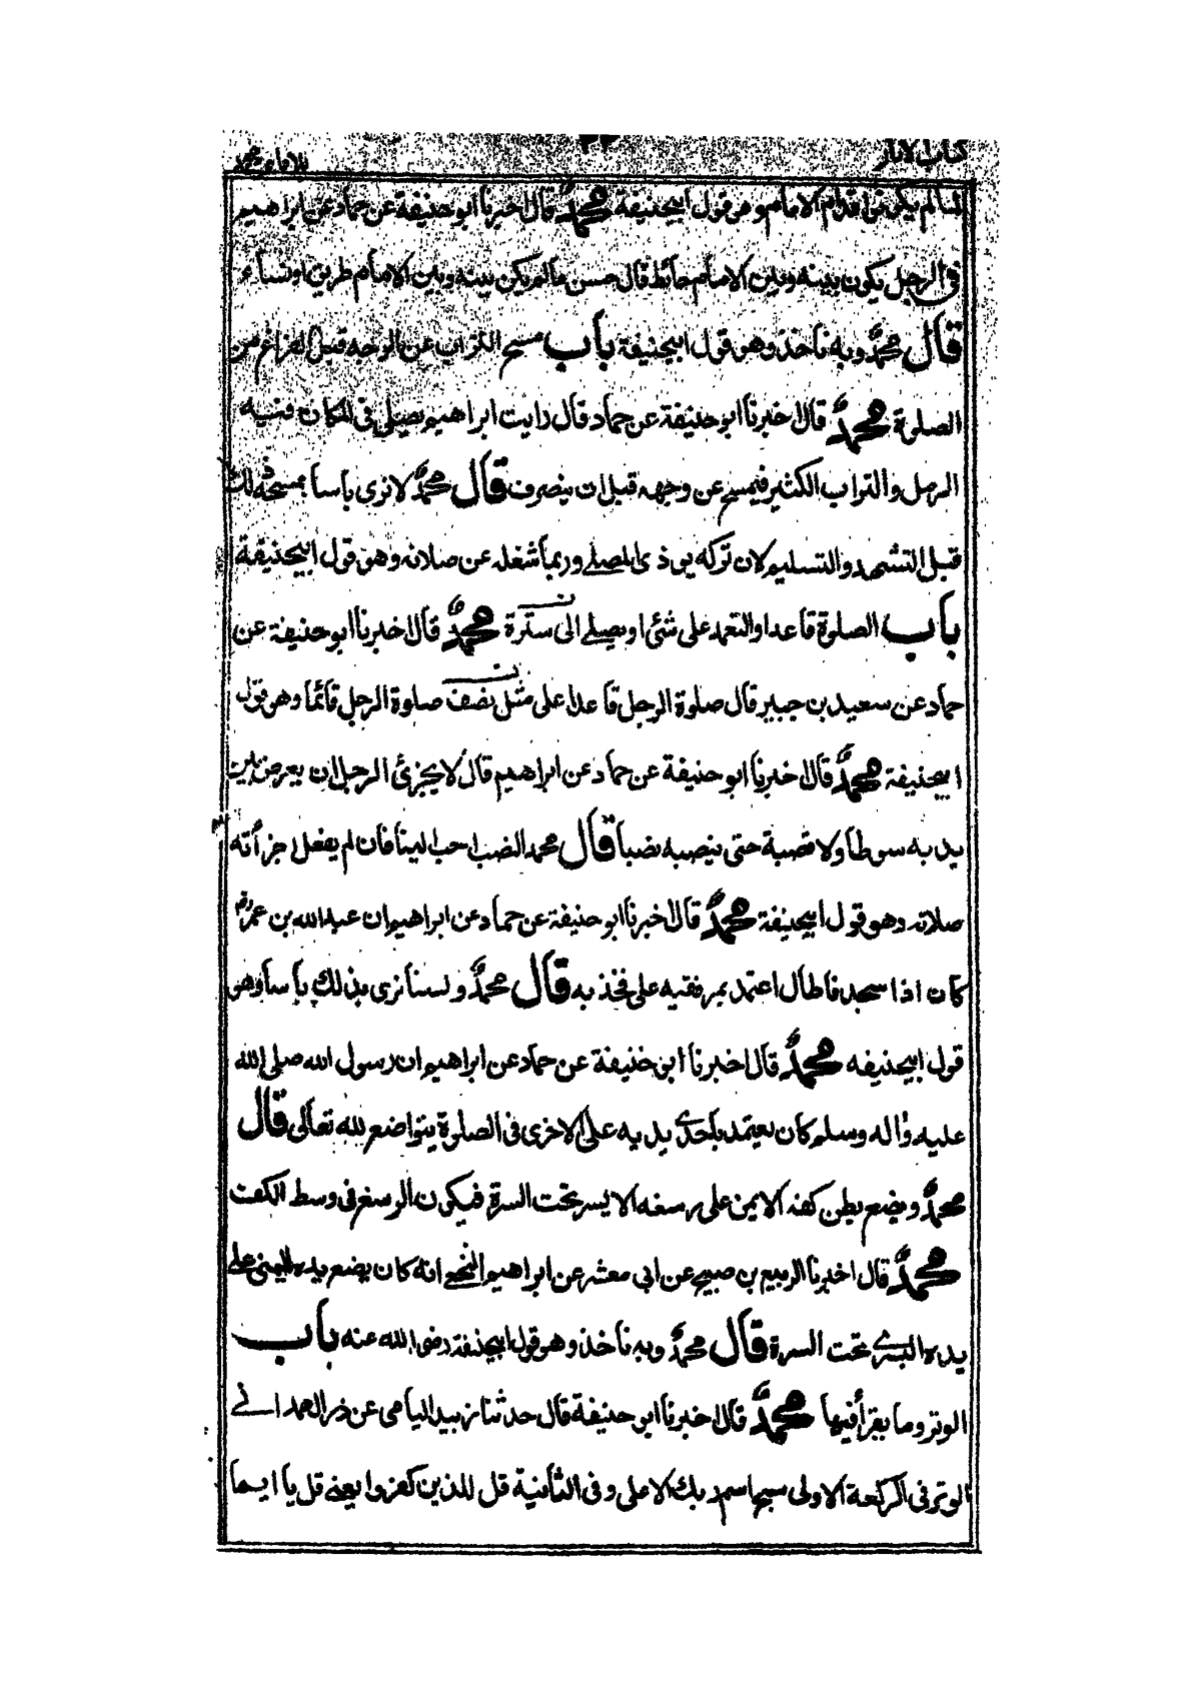 كتاب الاثار ٣٣ للامام محمد
مالم يكونوا قدام الامام وهو قول ابيحنيفة محمدٌ قال اخبرنا ابو حنيفة عن حماد عن ابراهيم
فى الرجل يكون بينه وبين الامام حائط قال حسن مالم يكن بينه وبين الامام طريق او نساء
قال محمدٌ وبه ناخذ وهو قول ابيحنيفة باب مسح التراب عن الوجه قبل الفراغ من
الصلوة محمدٌ قال اخبرنا ابو حنيفة عن حماد قال رايت ابراهيم يصلى فى المكان فيه
الرمل والتراب الكثير فيمسح عن وجهه قبل ان ينصرف قال محمدٌ لا نرى بأسا بمسحه ذلك
قبل التشهد والتسليم لان تركه يوذى المصلے وربما شغله عن صلاته وهو قول ابيحنيفة
باب الصلوة قاعدا والتعمد على شئ او يصلے الى سترة محمدٌ قال اخبرنا ابو حنيفة عن
حماد عن سعيد بن جبير قال صلوة الرجل قاعدا على مثل نصف صلوة الرجل قائما وهو قول
ابيحنيفة محمدٌ قال اخبرنا ابو حنيفة عن حماد عن ابراهيم قال لا يجزئ الرجل ان يعرض بين
يديه سوطا ولا قصبة حتى ينصبه نصبا قال محمد النصب احب الينا فان لم يفعل اجزأته
صلاته وهو قول ابيحنيفة محمدٌ قال اخبرنا ابو حنيفة عن حماد عن ابراهيم ان عبد الله بن عمر رض
كان اذا سجد فاطال اعتمد بمرفقيه على فخذيه قال محمدٌ ولسنا نرى بذلك بأسا وهو
قول ابيحنيفه محمدٌ قال اخبرنا ابو حنيفة عن حماد عن ابراهيم ان رسول الله صلى الله
عليه واله وسلم كان يعتمد باحدى يديه على الاخرى فى الصلوة يتواضع لله تعالى قال
محمدٌ ويضع بطن كفه الايمن على رسغه الايسر تحت السرة فيكون الرسغ فى وسط الكف
محمدٌ قال اخبرنا الربيع بن صبيح عن ابى معشر عن ابراهيم النخعے انه كان يضع يده اليمنى على
يده اليسرے تحت السرة قال محمدٌ وبه ناخذ وهو قول ابيحنيفة رضى الله عنه باب
الوتر وما يقرأ فيها محمدٌ قال اخبرنا ابو حنيفة قال حدثنا زبيد اليامى عن ذر الهمدانے
الوتر فى الركعة الاولى سبح اسم ربك الاعلى وفى الثانية قل للذين كفروا يعنى قل يا ايها